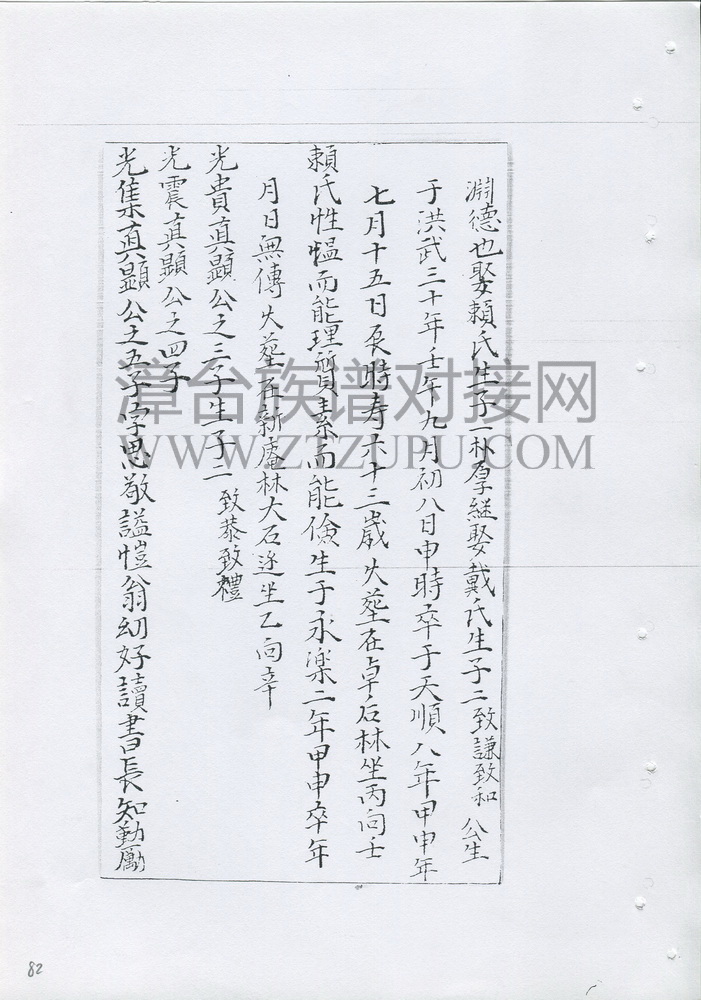 淵德也娶賴氏生子一朴厚継娶戴氏生子二致謙致和 公生
于洪武三十年壬午九月初八日申時卒于天順八年甲申年
七月十五日辰時寿六十三歲火葬在卓石林坐丙向壬
賴氏性愠而能理質素而能儉生于永楽二年甲申卒年
月日無傳火葬在新庵林大石边坐乙向辛
光貴真顯公之三子生子二 致恭致禮
光震真顯公之四子
光集真顯公之五子字思敬謚愷翁幼好讀書長知勤勵
漳台族谱对接网
WWW.ZTZUPU.COM
82